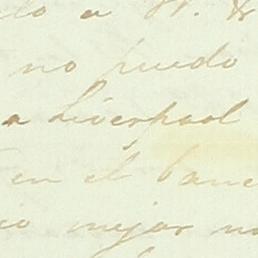 a W. &
no puedo
a Liverpool
en el banc
mejor no